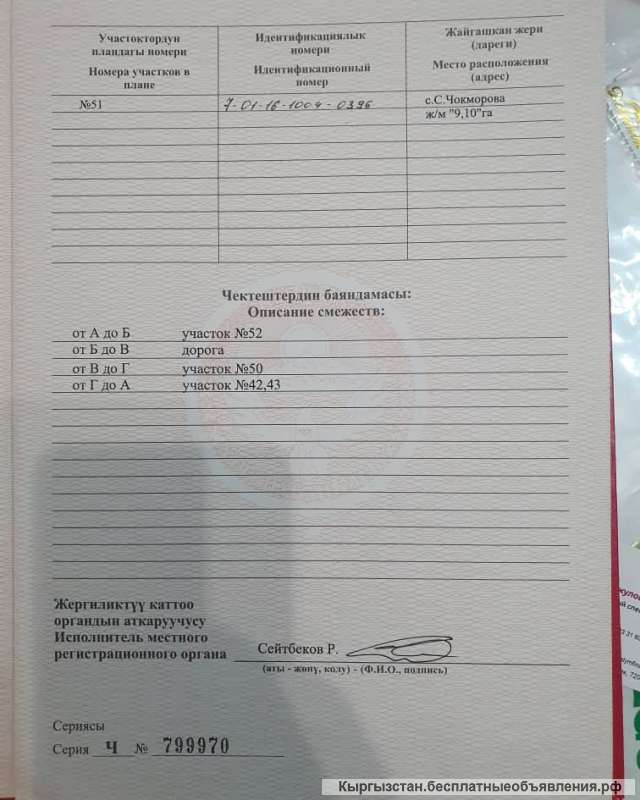 Участоктордун
пландагы номери
Номера участков в
плане
Идентификациялык
номери
Идентификационный
номер
Жайгашкан жери
(дареги)
Место расположения
(адрес)
№51
7-01-16-1004-0396
с.С.Чокморова
ж/м "9,10"га
Чектештердин баяндамасы:
Описание смежеств:
от А до Б участок №52
от Б до В дорога
от В до Г участок №50
от Г до А участок №42,43
Жергиликтүү каттоо
органдын аткаруучусу
Исполнитель местного
регистрационного органа
Сейтбеков Р.
(аты - жөнү, колу) - (Ф.И.О., подпись)
Сериясы
Серия Ч № 799970
Кыргызстан.бесплатныеобъявления.рф